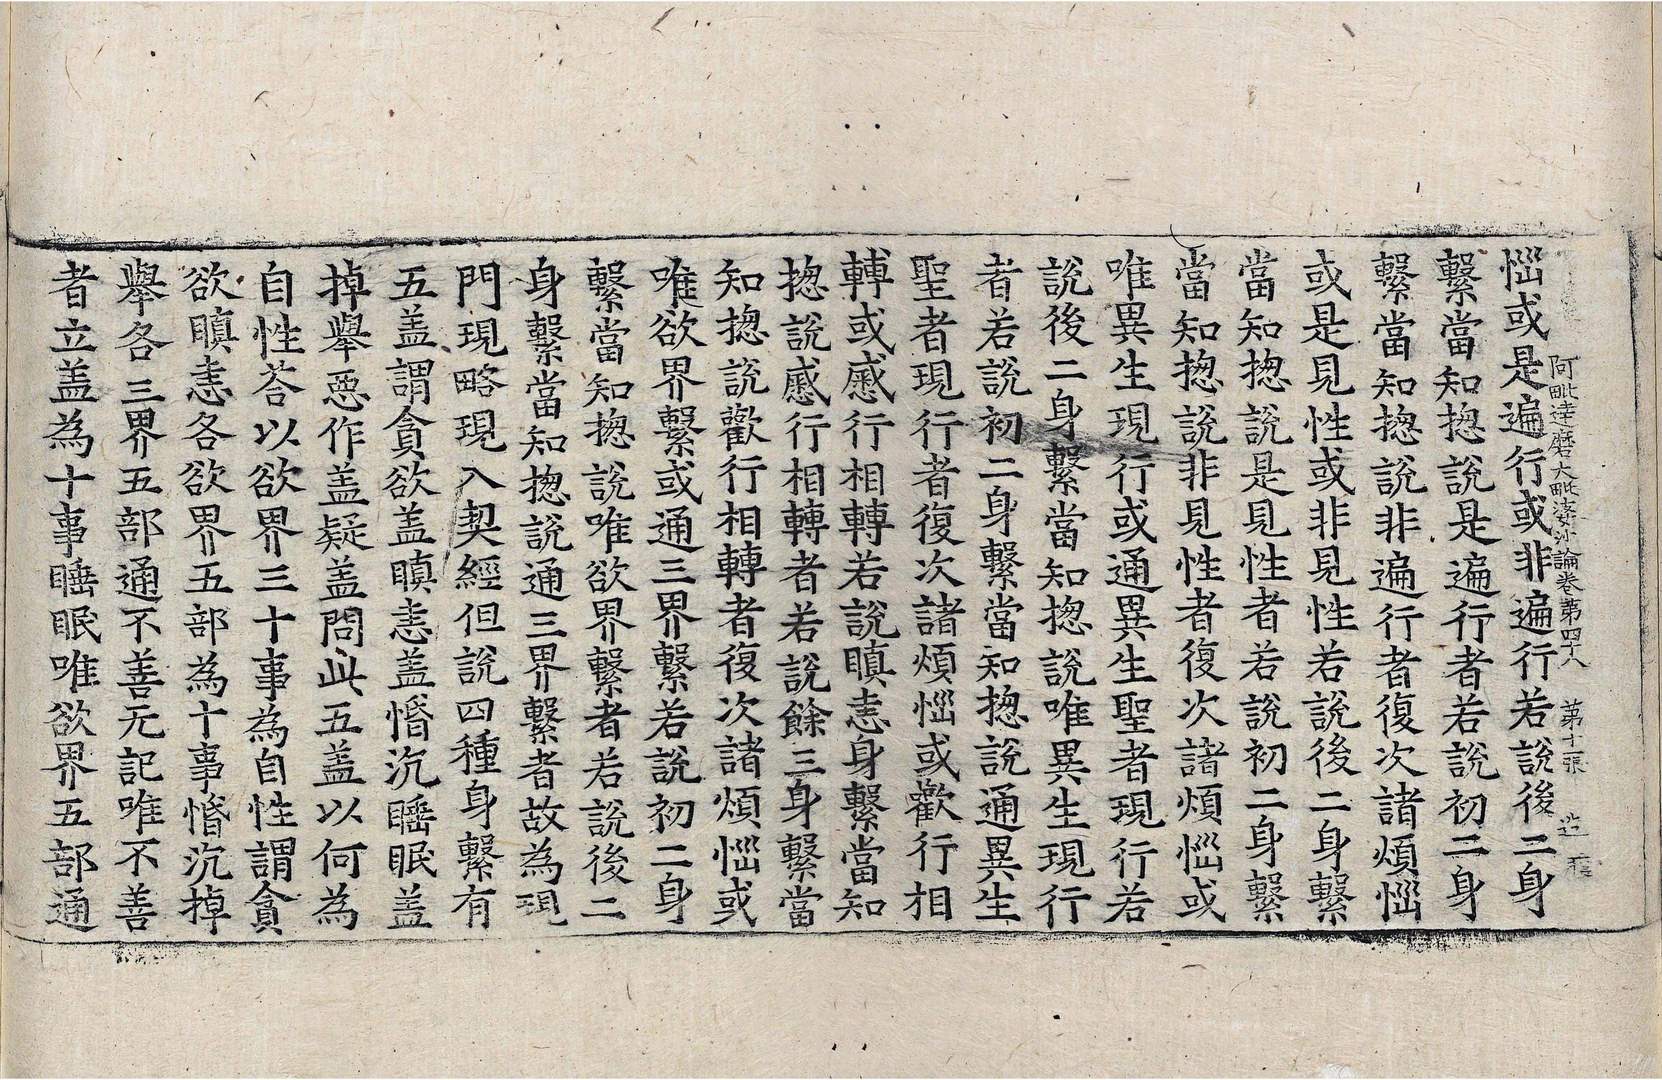 阿毗達磨大毗婆沙論卷第四十八 第十張 造
惱或是遍行或非遍行若說後二身
繫當知揔說是遍行者若說初二身
繫當知揔說非遍行者復次諸煩惱
或是見性或非見性若說後二身繫
當知揔說是見性者若說初二身繫
當知揔說非見性者復次諸煩惱或
唯異生現行或通異生聖者現行若
說後二身繫當知揔說唯異生現行
者若說初二身繫當知揔說通異生
聖者現行者復次諸煩惱或歡行相
轉或慼行相轉若說瞋恚身繫當知
揔說慼行相轉者若說餘三身繫當
知揔說歡行相轉者復次諸煩惱或
唯欲界繫或通三界繫若說初二身
繫當知揔說唯欲界繫者若說後二
身繫當知揔說通三界繫者故為現
門現略現入契經但說四種身繫有
五盖謂貪欲盖瞋恚盖惛沉睡眠盖
掉舉惡作盖疑盖問此五盖以何為
自性荅以欲界三十事為自性謂貪
欲瞋恚各欲界五部為十事惛沉掉
舉各三界五部通不善无記唯不善
者立盖為十事睡眠唯欲界五部通